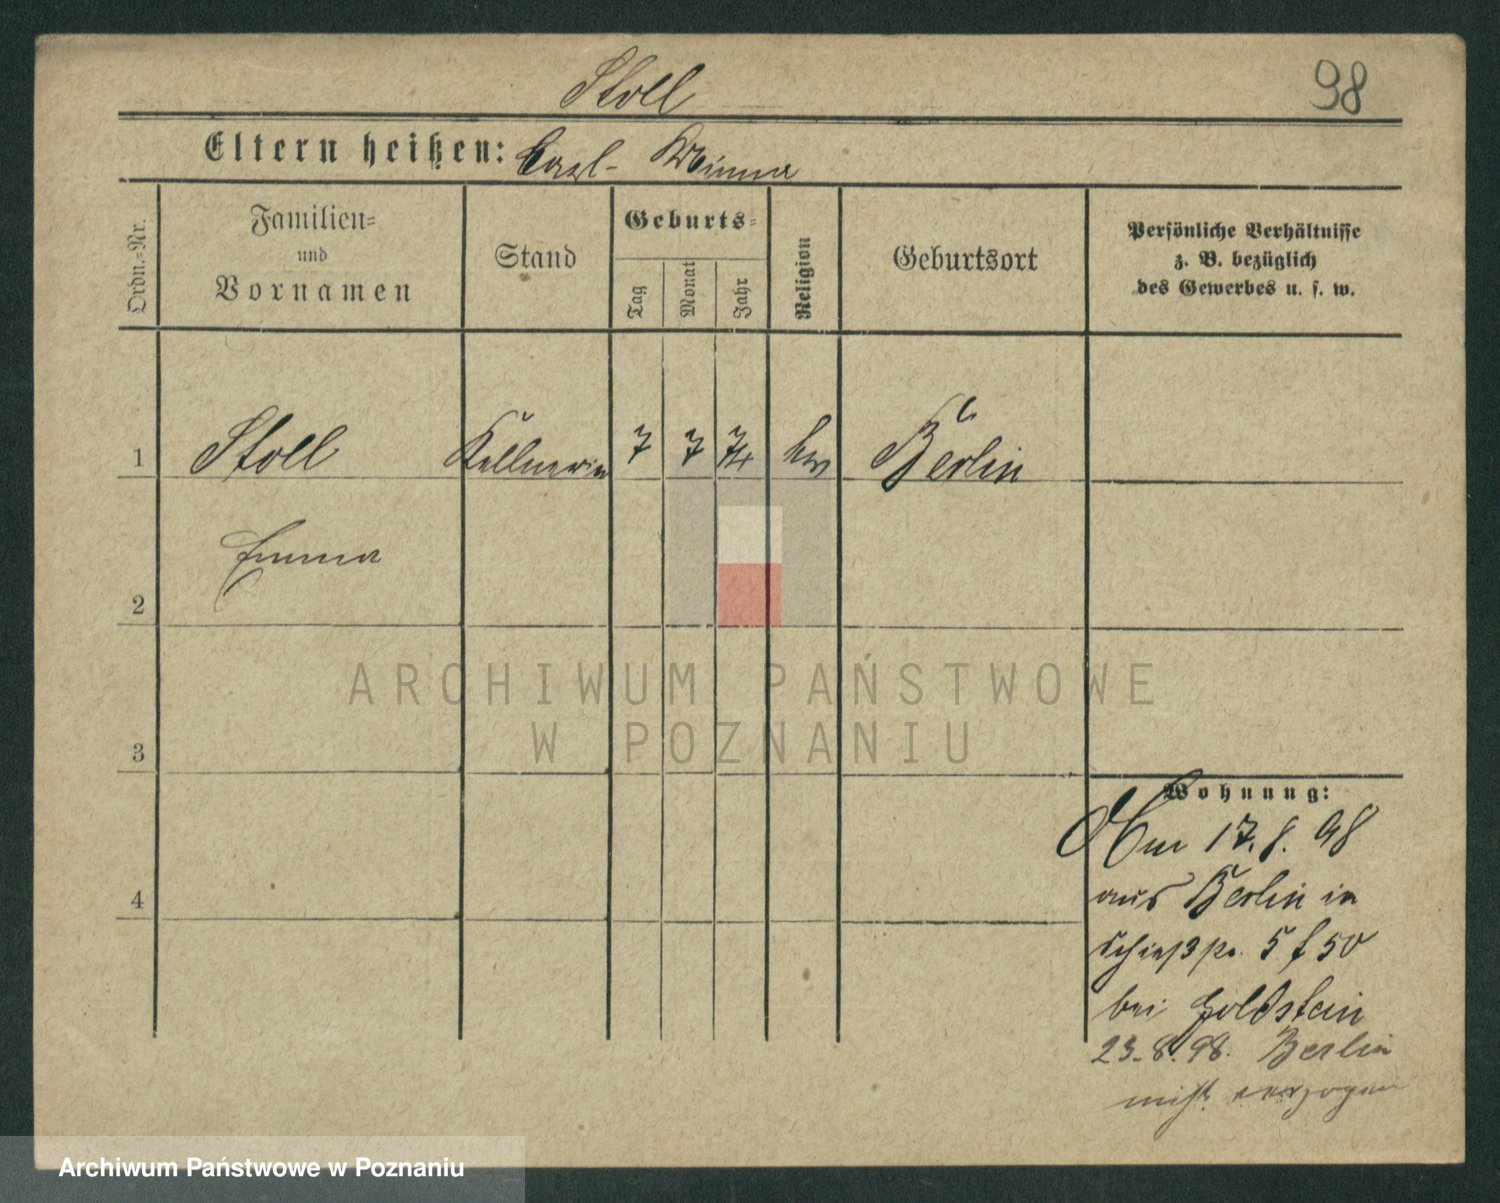 Stoll
98
Eltern heißen: Carl - Minna
Ordn.-Nr.
Familien-
und
Vornamen
Stand
Geburts-
Tag
Monat
Jahr
Religion
Geburtsort
Persönliche Verhältnisse
z. B. bezüglich
des Gewerbes u. s. w.
1 Stoll Kellnerin 7 7 74 Berlin
Emma
2
3
4
Wohnung:
17.8.98
aus Berlin in
5 f 50
bei Goldstein
23.8.98. Berlin
verzogen
ARCHIWUM PAŃSTWOWE
W POZNANIU
Archiwum Państwowe w Poznaniu